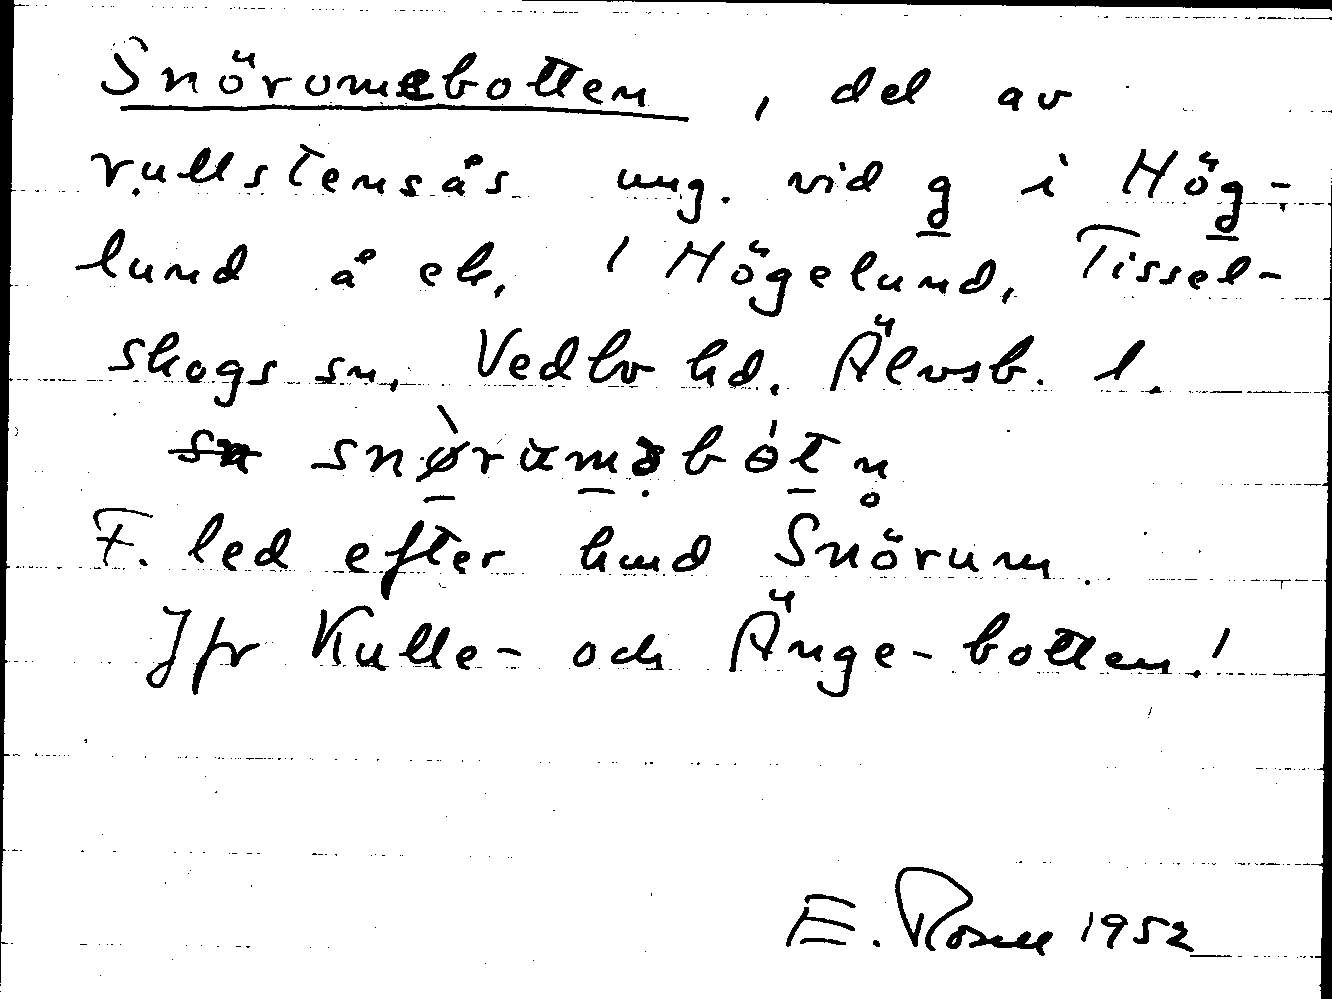 Snöromebotten, del av
rullstensås ung. vid g i Hög-
lund å ek, i Högelund, Tissel-
skogs sn, Vedbo hd. Älvsb. l.
snørumǝbotn̥
F. led efter hmd Snörum.
Jfr Kulle- och Änge-botten!
E. Rosell 1952